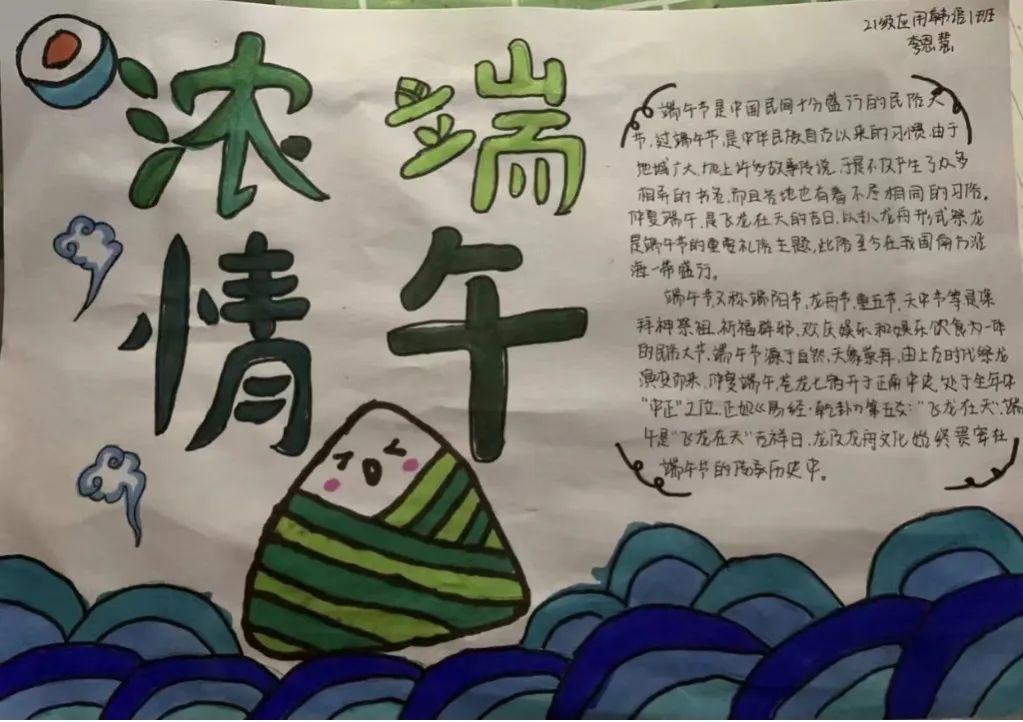 浓情端午
21级应用韩语1班
李恩慧
端午节是中国民间十分盛行的民俗大
节,过端午节,是中华民族自古以来的习惯,由于
地域广大,加上许多故事传说,于是不仅产生了众多
相异的书名,而且各地也有着不尽相同的习俗。
仲夏端午,是飞龙在天的吉日,以扒龙舟形式祭龙
是端午节的重要礼俗主题,此俗至今在我国南方沿
海一带盛行。
端午节又称端阳节,龙舟节,重五节,天中节等是集
拜神祭祖,祈福辟邪,欢庆娱乐和娱乐饮食为一体
的民俗大节,端午节源于自然,天象崇拜,由上古时代祭龙
演变而来,仲夏端午,苍龙七宿升于正南中央,处于全年中
“中正”之位,正如《易经·乾卦》第五爻:“飞龙在天”,端
午是“飞龙在天”吉祥日,龙及龙舟文化始终贯穿在
端午节的传承历史中。